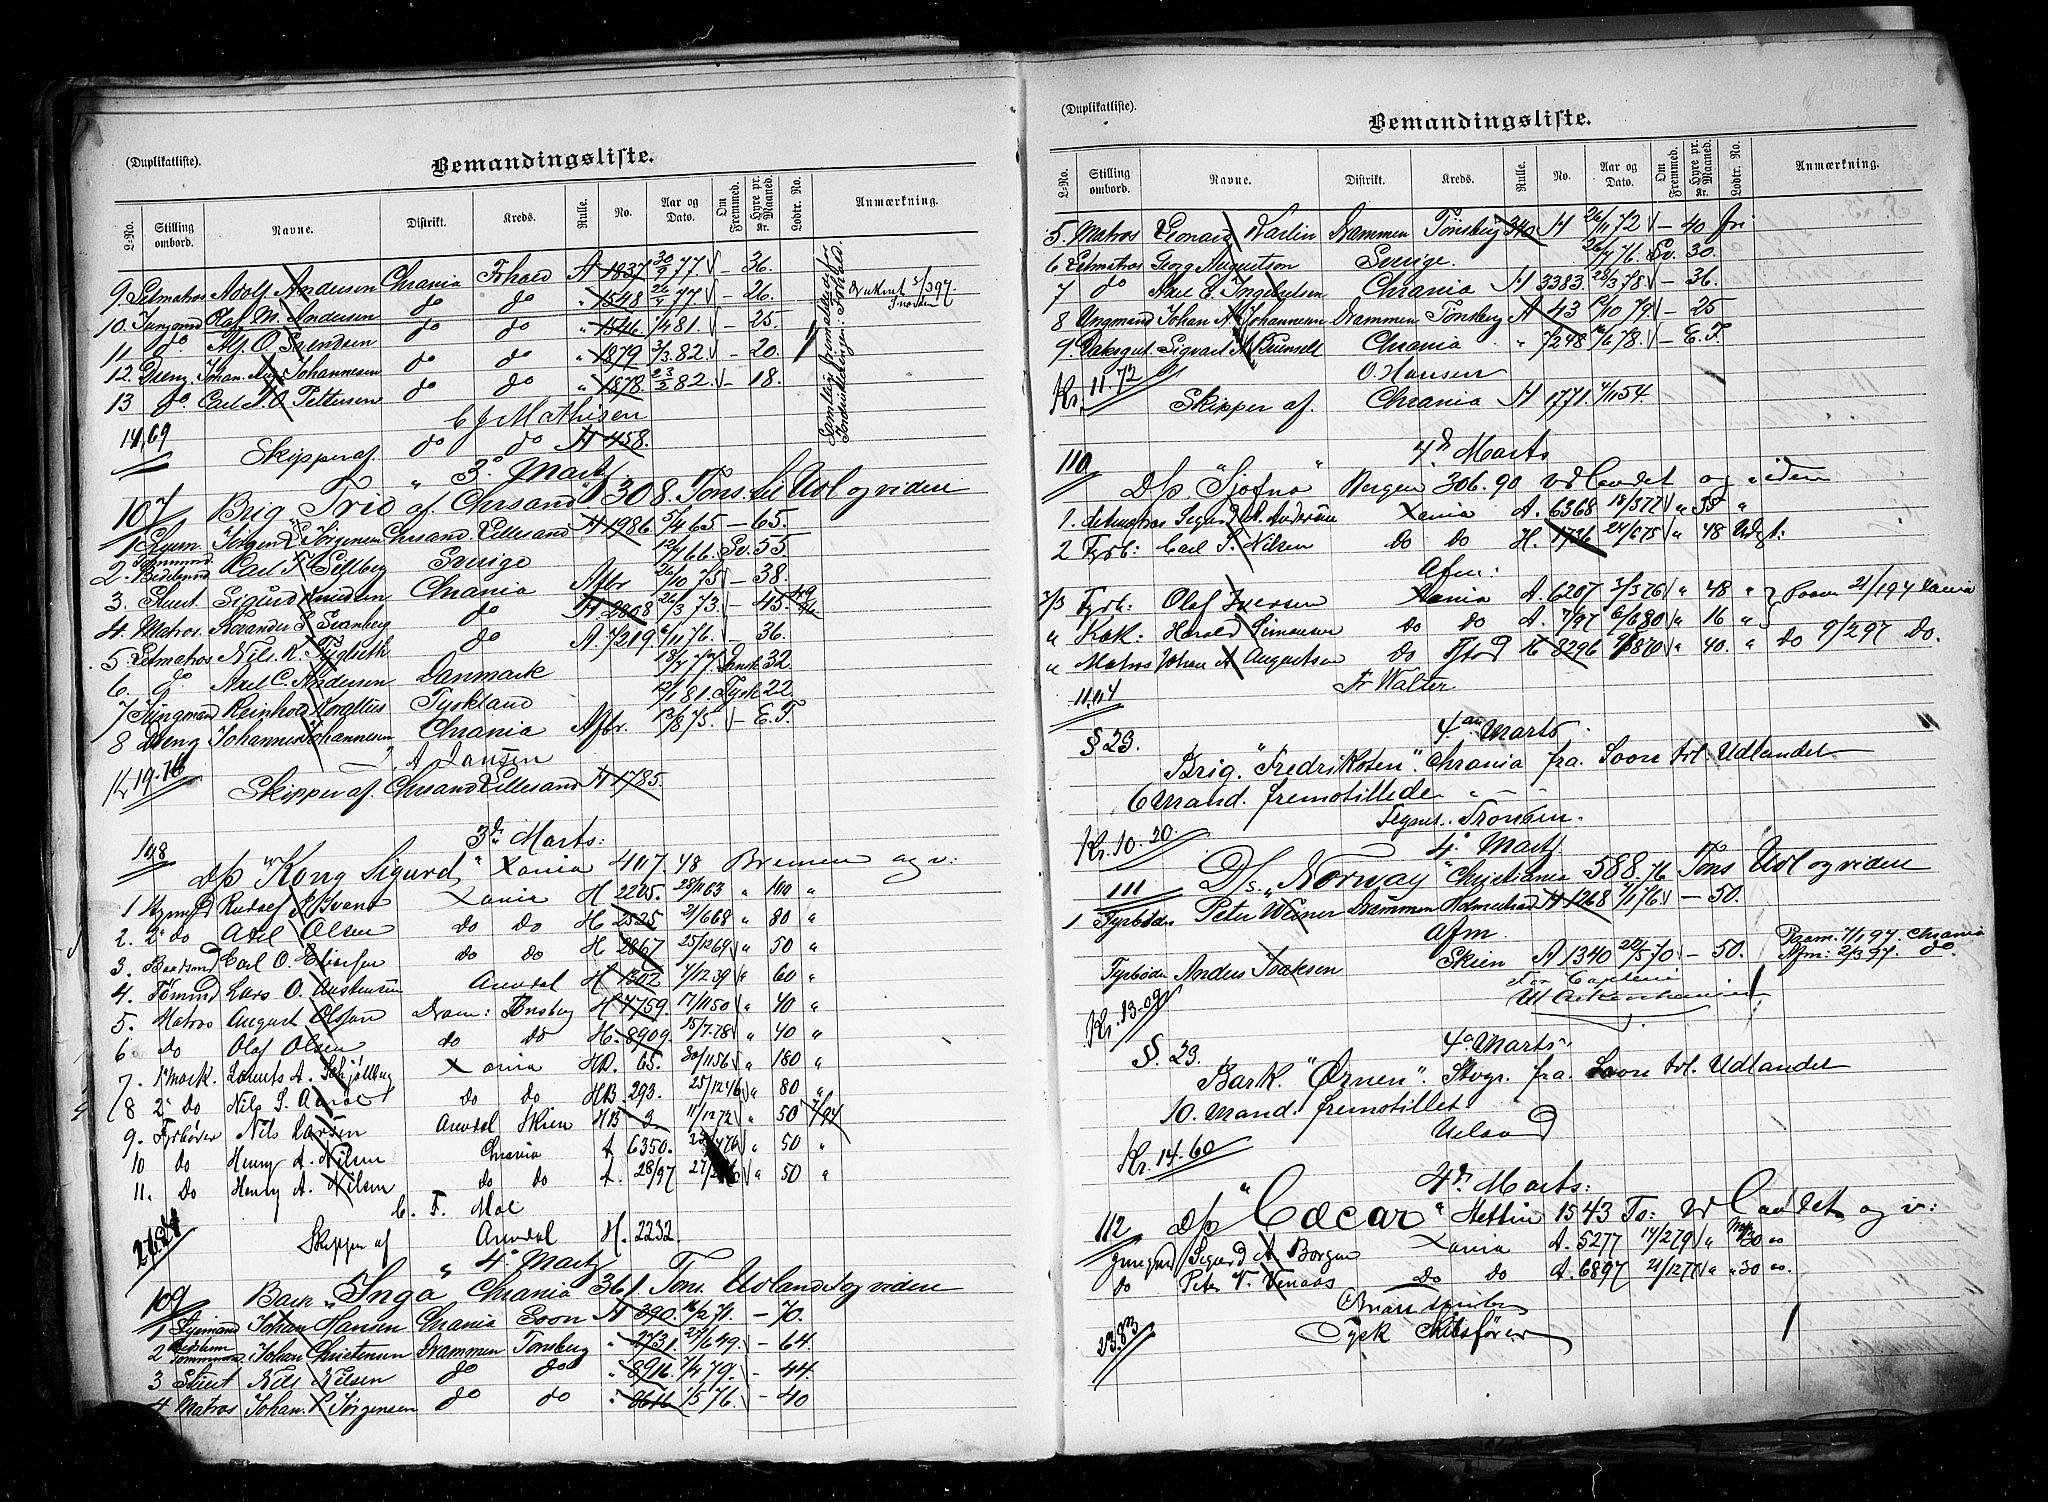 (Duplikatliste).
Bemandingsliste.
L-No. Stilling ombord. Navne. Distrikt. Kreds. Rulle. No. Aar og Dato. Om Fremmed. Hyre pr. Maaned. Kr. Lodtr. No. Anmærkning.
9. Letmatros Adolf Andersen Chrania Frhald A 1837 30/9 77 – 36.
10. Jungmd Olaf M. Andersen do do " 1548 26/1 77 – 26.
11 do. Alf. O. Svendsen do do " 1546 1/4 81 – 25.
12. Dreng Johan Johannesen do do " 1879 3/3 82 – 20.
13 do. Carl A. O. Pettersen do do " 1878 23/2 82 – 18.
C J Mathisen
14,69
Skipper af. do do A 458.
3die Marts
107 Brig "Trio" af Chrsand 308. Tons til Udl og viden
1 Styrm. Jörgen L. Jörgensen Chrsand Lillesand A 1986 5/4 65 – 65.
2. Tømmermd Bedstmd Karl F. Sellberg Sverige 12/7 66 Sv. 55
3. Stuert Sigurd Knudsen Chrania Afbr 26/10 75 – 38.
4. Matros. Alexander S. Svanberg do H. 2208 26/3 73. – 45
5. Letmatros Nils. R. Figlieth do A. 7219 6/11 76. – 36.
6. do. Axel C. Andersen Danmark 18/7 77 Dansk 32
7 Jungmand Reinhold Korallus Tyskland 12/1 81 Tysk 22
8 Dreng Johannes Johannesen Chrania Afbr. 13/8 75. – E. F.
A Jansen
Kr 19.76
Skipper af. Chrsand Lillesand A 1785.
108 3de Marts:
D/s "Kong Sigurd" Xania 407.48 Bremen og v:
1 Styrmd Rudolf Xania H 2205. 25/11 63 " 100 "
2. 2' do Axel Olsen do do H 2525 21/6 68 " 80 "
3. Baadsmd Carl O. do do H 2867 25/12 69 " 50 "
4. Tømmd Lars O. Austensen Arendal H 1302 7/12 39 " 60 "
5. Matros August Olsson Dram: Tønsberg H 4759 17/11 50 " 40 "
6 do Olaf Olsen do do H. 8909. 15/7 78 " 40 "
7. 1ste Mask. Laurits A. Schjølberg Xania HD. 65. 30/11 56 " 180 "
8 2' do Nils S. do do HB 293. 25/12 46 " 80 "
9. Fyrbøter Nils Larsen Arendal Skien HB 3 11/12 72 " 50
10 do Henry A. Nilsen Chrania A 6350. 23/4 76 " 50 "
11. do Henry A. Nilsen do do A. 28/97 " 50 "
C. F. Moe
27.24
Skipper af Arendal H. 2232.
4de Marts
109 Bark "Inga" Chrania 361 Tons. Udlandet og viden
1 Styrmand Johan Hansen Chrania Soon A 390. 16/2 71. – 70.
2 Bedstmd Tømmermd Johan Christensen Drammen Tønsberg " 2731 27/6 49. – 64.
3 Stuert Nils Nilsen do do " 8916 7/4 79. – 44.
4 Matros Johan. L. Jörgensen do do " 8616 1/5 76. – 40
(Duplikatliste).
Bemandingsliste.
L-No. Stilling ombord. Navne. Distrikt. Kreds. Rulle. No. Aar og Dato. Om Fremmed. Hyre pr. Maaned. Kr. Lodtr. No. Anmærkning.
5. Matros Leonard Karlin Drammen Tönsberg H 26/11 72 – 40 fri
6 Letmatros Georg Augustson Sverige. 26/7 76. Sv. 30.
7 do Axel E. Ingebretsen Chrania H 3383. 28/3 78. – 36.
8 Ungmand Johan A. Johannesen Drammen Tønsberg A 43 12/10 79 – 25
9. Dæksgut. Sigvart A. Brunsell Chrania " 7248 16/6 78. – E. F.
O. Hansen
Kr. 11.72 Skipper af. Chrania H 1771. 4/11 54.
110 4de Marts
D/s. "Sjofna" Bergen 306.90 Udlandet og viden
1. Letmatros Sigurd A. Andersen Xania A. 6368 18/3 77 " 35 "
2 Fyrb: Carl S. Nilsen do do H. 1736 24/6 75 " 48 Udgt:
Afm:
3/3 Fyrb: Olaf Iversen Xania A. 6207 3/3 76 " 48 " Paam 21/1 97 Xania
" Kok: Harald Simonsen do do A. 7/97 6/6 80 " 16 "
" Matros Johan A. Augustsen do Fjrd H 8296 9/8 70 " 40. " do 9/2 97 do.
11.04 Fr Walter
§ 23. 4de Marts.
Brig. "Fredriksten". Chrania fra. Soon til. Udlandet
6 Mand. fremstillede
Sigurd. Tronsen.
Kr. 10.20.
4. Marts
111 D/s. "Norway" Christiania 588.76 Tons Udl og viden
1 Fyrbøder Peter Weiner Drammen Holmestrand H 1268 7/1 76. – 50.
Afm.
Fyrbøder Anders Isaksen Skien A 1340 20/5 70 – 50. Paam. 7/1 97. Chrania
Afm: 2/3 97. do.
For Captein
Kr. 13.09
§. 23. 4de Marts.
Bark. "Ørnen". Stvgr. fra. Soon til. Udlandet
10. Mand. fremstillet.
Ueland
Kr. 14.60
4de Marts:
112 D/s "Cæcar" Stettin 1543 To: Udlandet og v:
Jungmd Sigurd A Borgen Xania A. 5277 14/2 79 " Mk 30 "
do Peter V. Venaas do do A. 6897 21/12 77 " " 30 "
23.83
Tysk Skibsfører